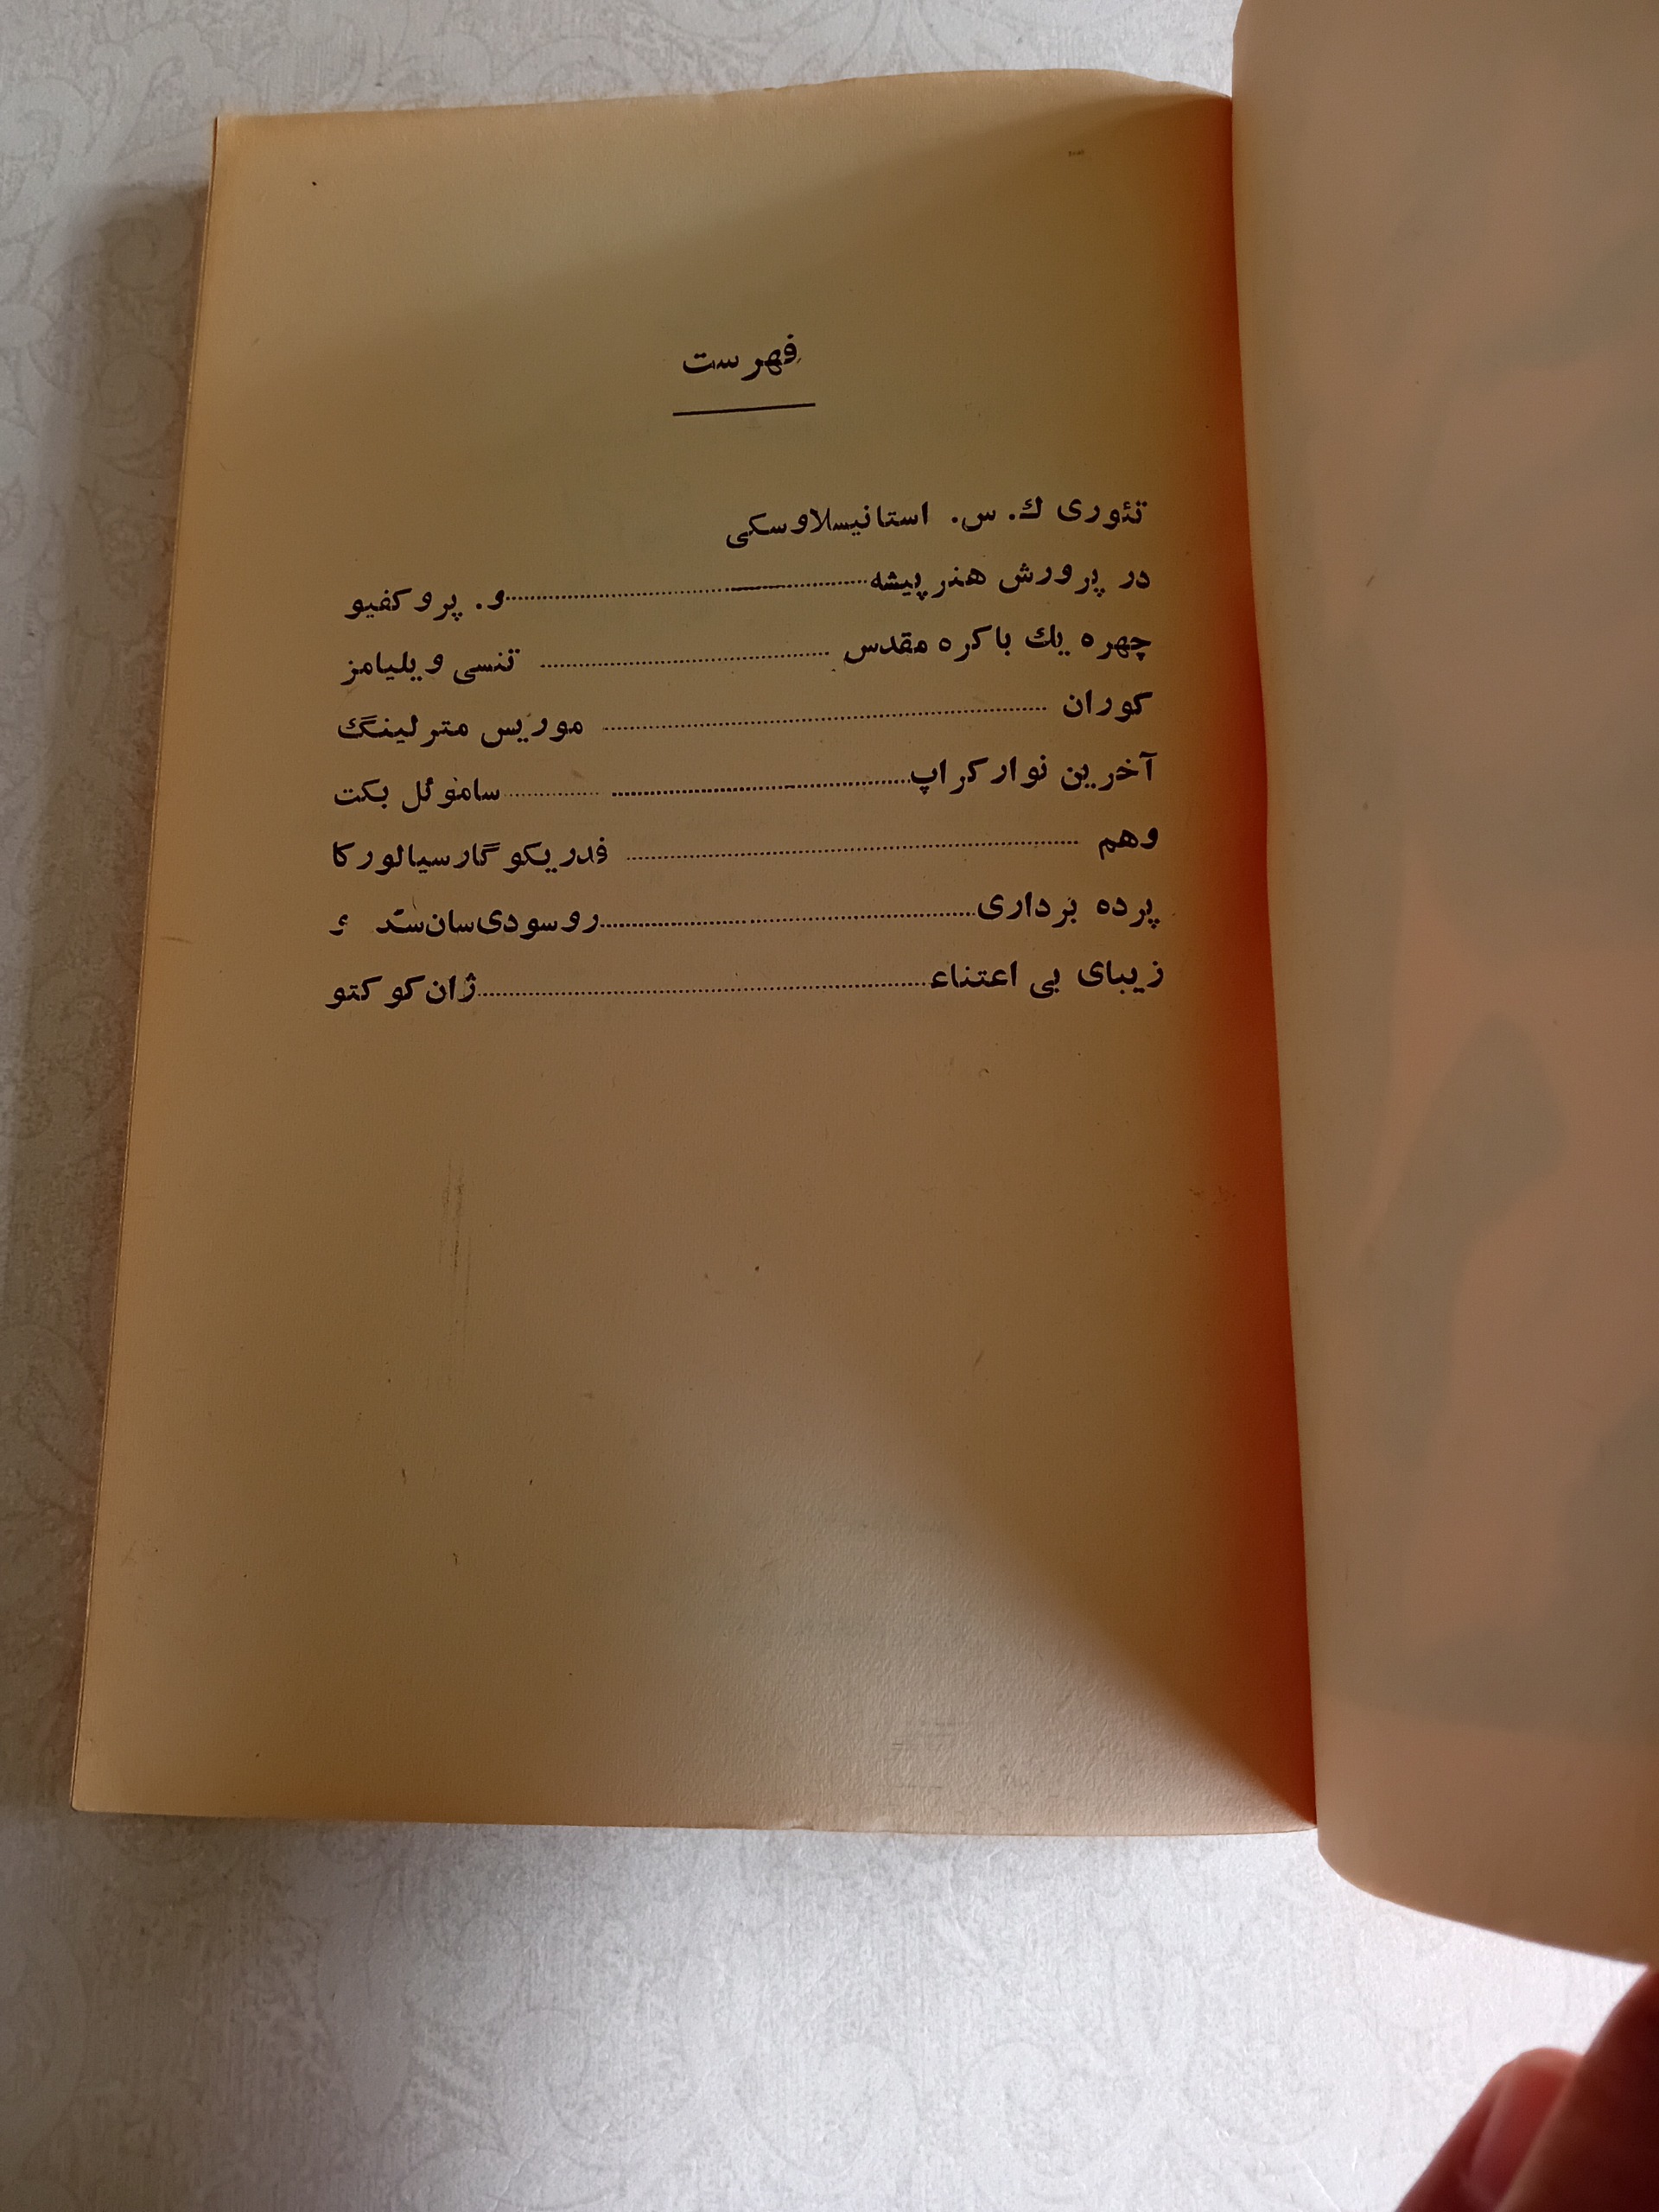 فهرست
تئوری ك. س. استانیسلاوسکی
در پرورش هنرپیشه ........ و. پروکفیو
چهره یك باکره مقدس ........ تنسی ویلیامز
کوران ........ موریس مترلینگ
آخرین نوار کراپ ........ ساموئل بکت
وهم ........ فدریکو گارسیالورکا
پرده برداری ........ روسودی‌سان‌ستد و
زیبای بی اعتناء ........ ژان کوکتو